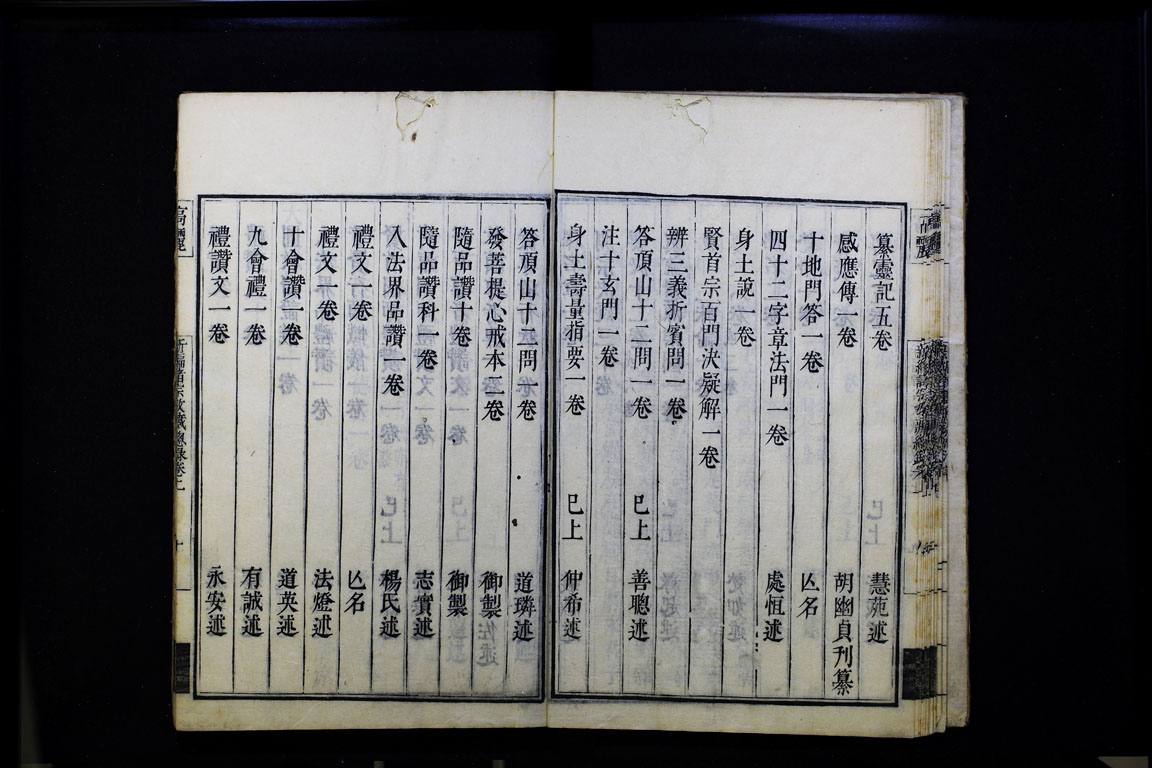 纂靈記五卷 慧苑述
感應傳一卷 胡幽貞刊纂
十地門答一卷 亾名
四十二字章法門一卷 處恒述
身土說一卷
賢首宗百門決疑解一卷
辨三義折賓問一卷
答頂山十二問一卷 已上 善聰述
注十玄門一卷
身土壽量指要一卷 已上 仲希述
答頂山十二問一卷 道璘述
發菩提心戒本二卷 御製
隨品讚十卷 御製
隨品讚科一卷 志實述
入法界品讚一卷 楊氏述
禮文一卷 亾名
禮文一卷 法燈述
十會讚一卷 道英述
九會禮一卷 有誠述
禮讚文一卷 永安述
高麗